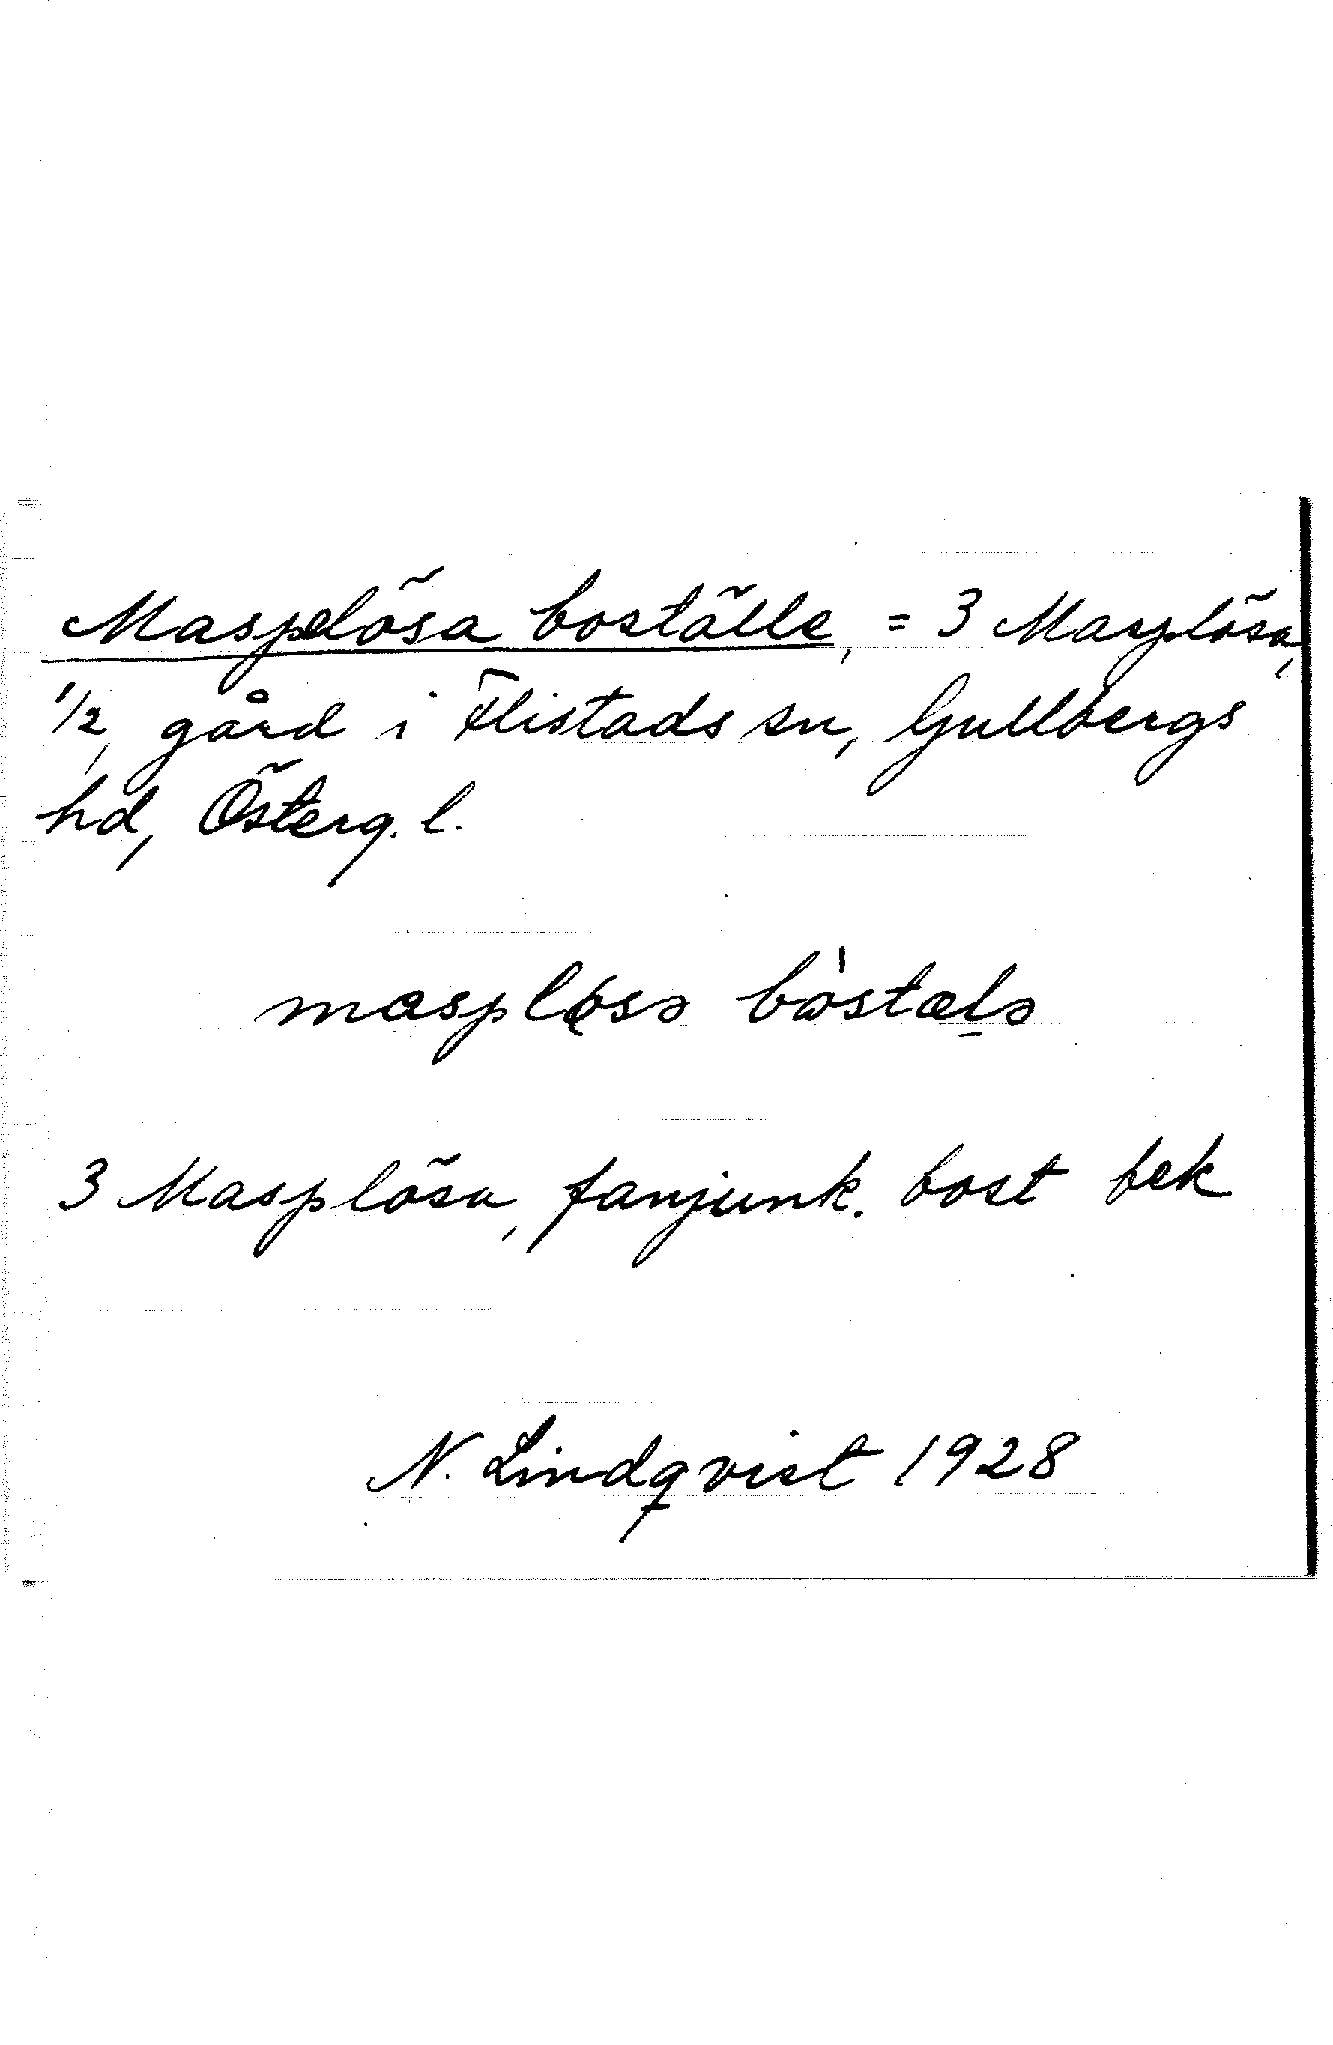 Masplösa boställe, = 3 Masplösa,
1/2, gård i Flistads sn, Gullbergs
hd, Österg. l.
3 Masplösa, fanjunk. bost bek
N. Lindqvist 1928